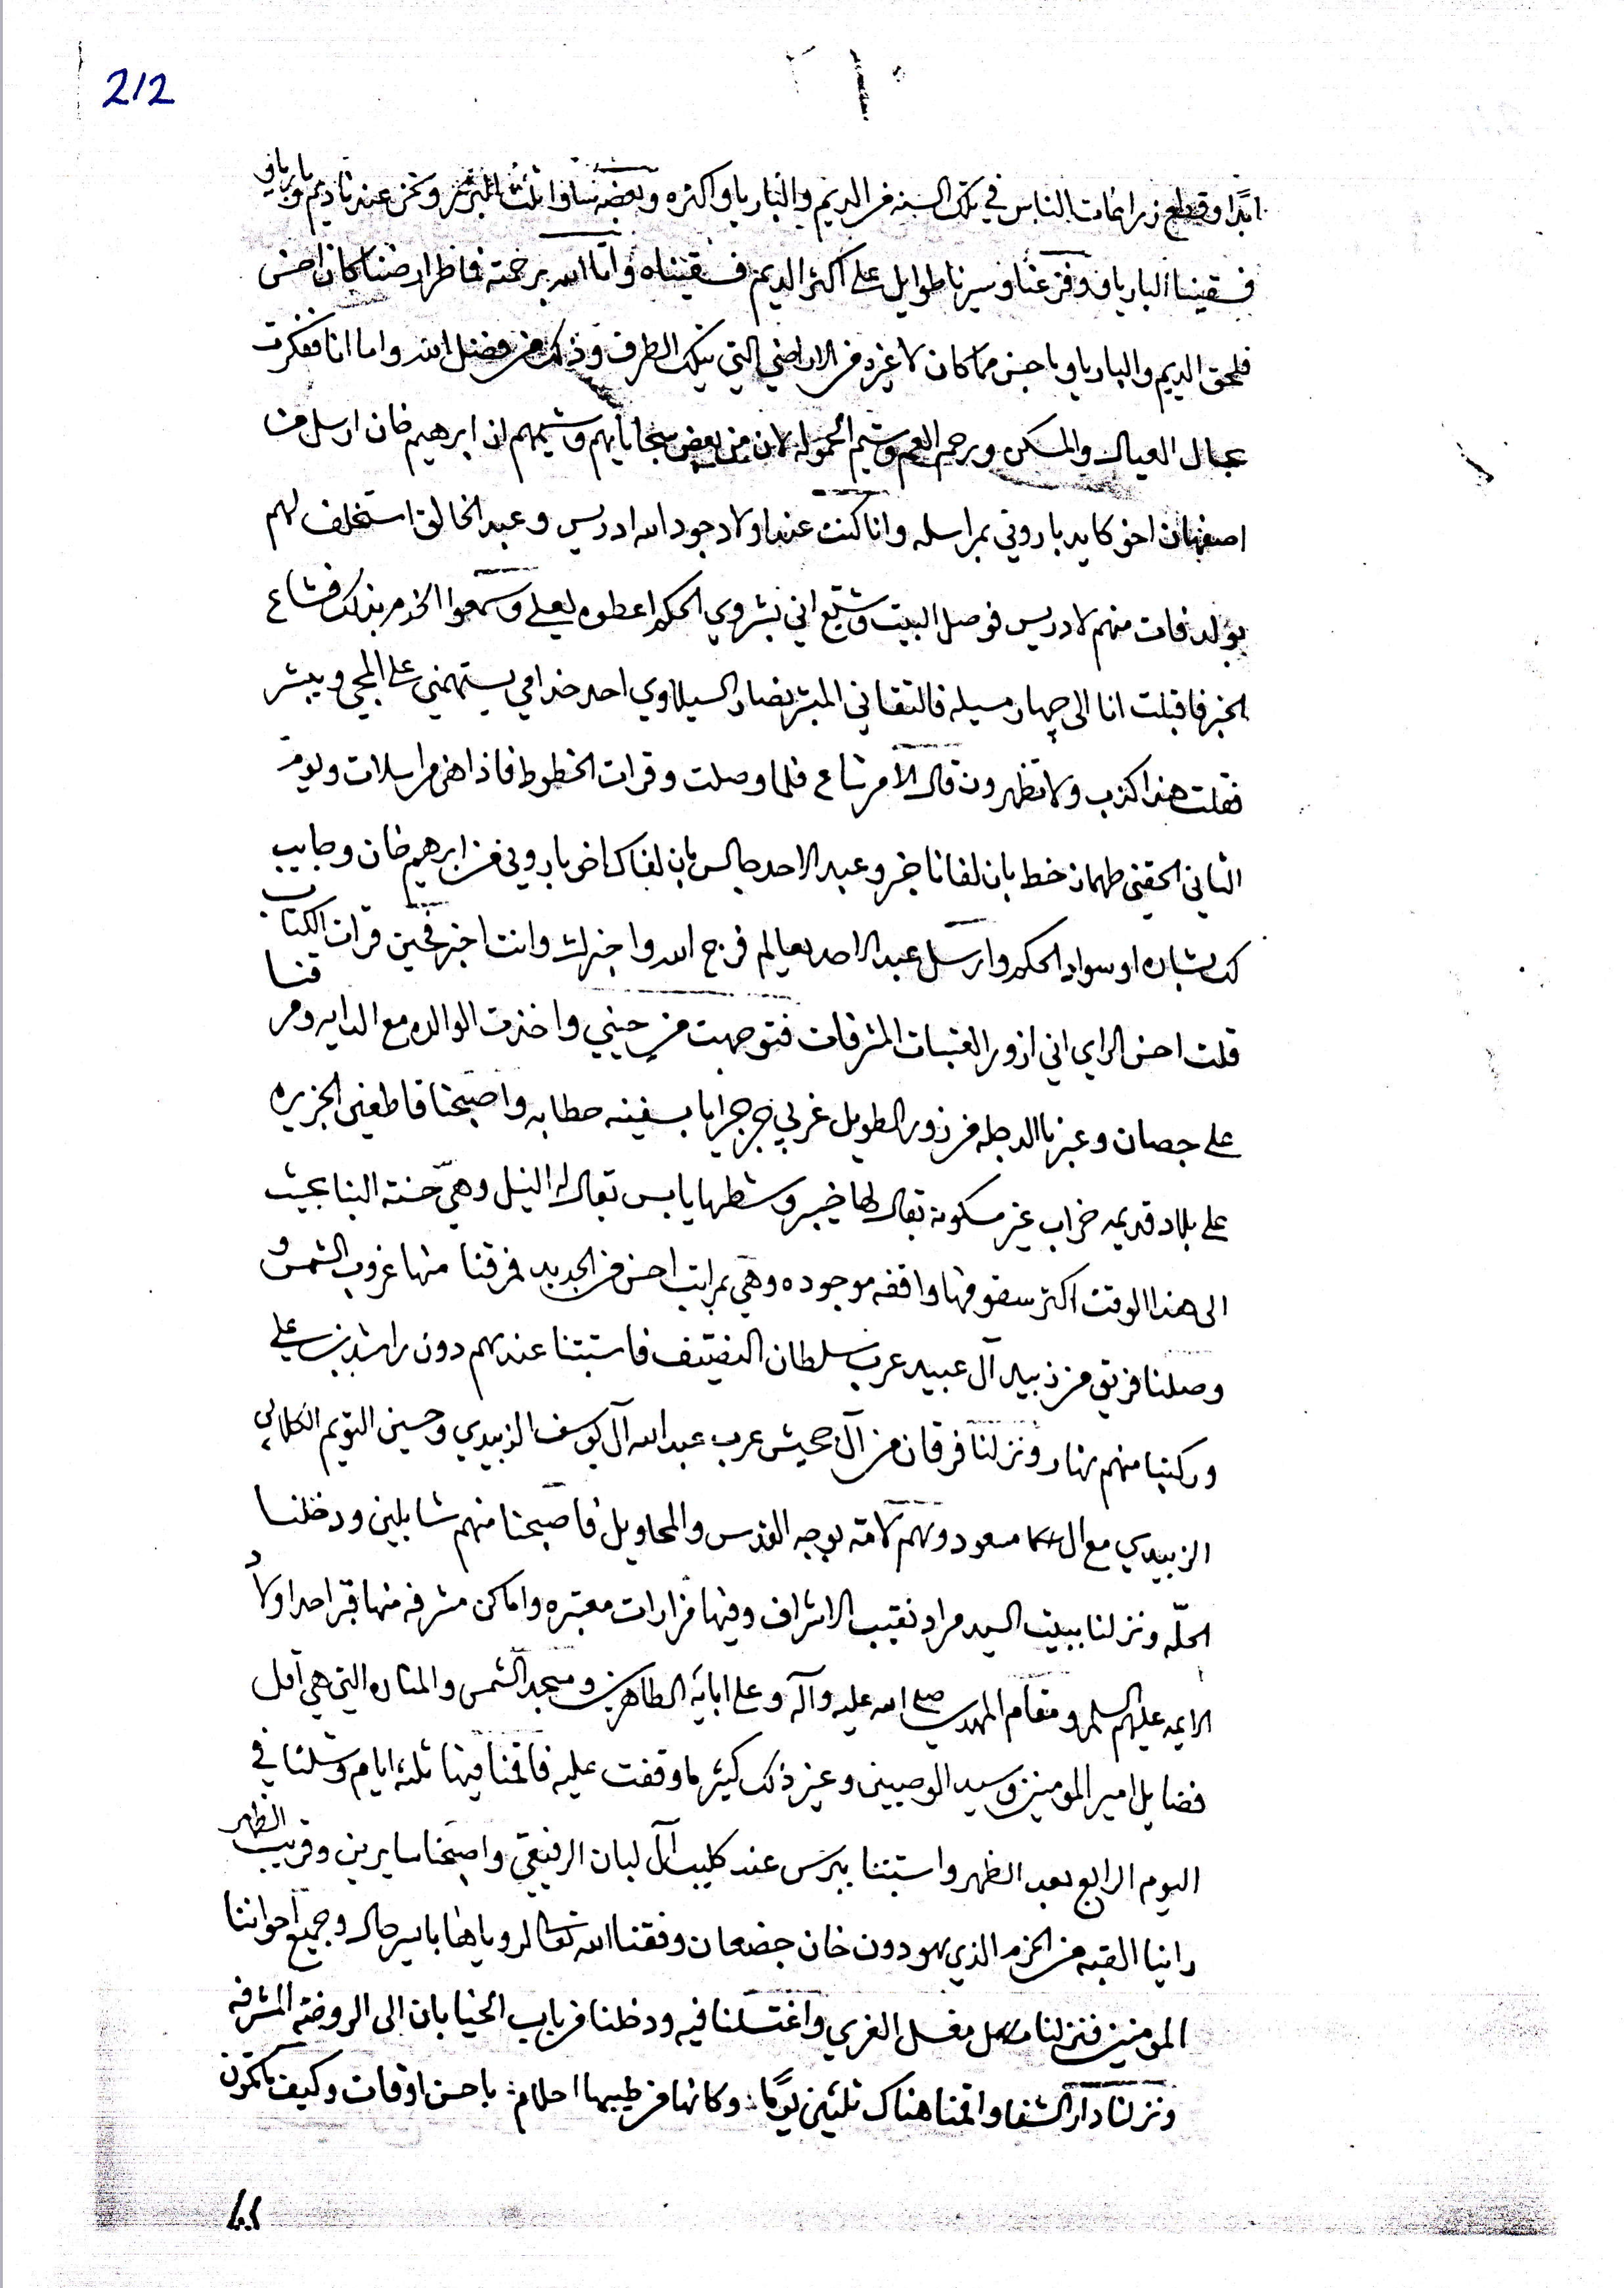 212
ابدا وقطع زراعات الناس في تلك السنه من الديم والبارياو اكثره وبعضه ساوا ثلث البزر ونحن عندنا ديم وبارياو
فسقينا البارياو وفزعنا وسيرنا طوايل على اكثر الديم فسقيناه واتا الله برحمته فاظن ارضنا كان احسن
فلحق الديم والبارياو باحسن مما كان لا غيره من الاراضي التي بتلك الطرف وذلك من فضل الله واما انا ففكرت
بحال العيال والمسكن ورحم العم وشيم الحموله لان من بعض سجاياهم وشيمهم ان ابرهيم خان ارسل من
اصفهان اخو كايد باروني بمراسله وانا كنت عند اولاد جود الله ادريس وعبد الخالق استخلف لهم
بولد فات منهم لادريس فوصل البيت وشيع اني بشروي الحكم اعطوه ليعلي وسمعوا الخدم بذلك فشاع
الخبر فاقبلت انا الى چهار مسيله فالتقاني المبشر نصار السيلاوي احد خدامي يستهمني على المجي ويبشر
فقلت هذا كذب ولا تظهرون قال الامر شاع فلما وصلت وقرات الخطوط فاذا هن مراسلات ويوم
الثاني الحقني طهماز خط بان لفانا خبر وعبد الاحد جالس بان لفاك اخو باروني من ابرهيم خان وجايب
لك بشاره او سواد الحكم وارسل عبد الاحد يعالم فرج الله واخبرك وانت اخبر فحين قرات الكتاب
قلت احسن الراي اني ازور العتبات المشرفات فتوجهت من حيني واخذت الوالده مع الدايه ومرقنا
على جصان وعبرنا الدجله من زور الطويل غربي جرجرايا بسفينه حطابه واصبحنا قاطعين الجزيره
على بلاد قديمه خراب غير مسكونه يقال لها خيبر وشطها يابس يقال له النيل وهي حسنة البنا بحيث
الى هذا الوقت اكثر سقوفها واقفه موجوده وهي بمراتب احسن من الجديد فمرقنا منها غروب الشمس و
وصلنا فريق من زبيد آل عبيد عرب سلطان النفيتف فاستبتنا عندهم دون راشد بن علي
وركبنا منهم نهار ونزلنا فرقان من آل جحيش عرب عبد الله آل يوسف الزبيدي وحسين التويم الكلابي
الزبيدي مع ال مسعود ولهم لامة بوجه القدس والمحاويل فاصبحنا منهم شايلين ودخلنا
الحلّه ونزلنا ببيت السيد مراد نقيب الاشراف وفيها مزارات معتبره واماكن مشرفه منها قبر احد اولاد
الايمه عليهم السلم ومقام المهدي صلى الله عليه وآله وعلى ابايه الطاهرين ومسجد الشمس والمناره التي هي اقل
فضايل امير المومنين وسيد الوصيين وغير ذلك كثير ما وقفت عليه فاقمنا فيها ثلثه ايام وشلنا في
اليوم الرابع بعد الظهر واستبتنا ببرس عند كليب آل لبان الرفيعي واصبحنا سايرين وقريب الظهر
راينا القبه من الحزم الذي يهودون خان جضعان وفقنا الله تعالى لروياها بايسر حال وجميع اخواننا
المومنين فنزلنا مغسل الغري واغتسلنا فيه ودخلنا من باب الخيابان الى الروضه المشرفه
ونزلنا دار الشفا واقمنا هناك ثلثين يومًا وكانها من طيبها احلام باحسن اوقات وكيف ما تكون